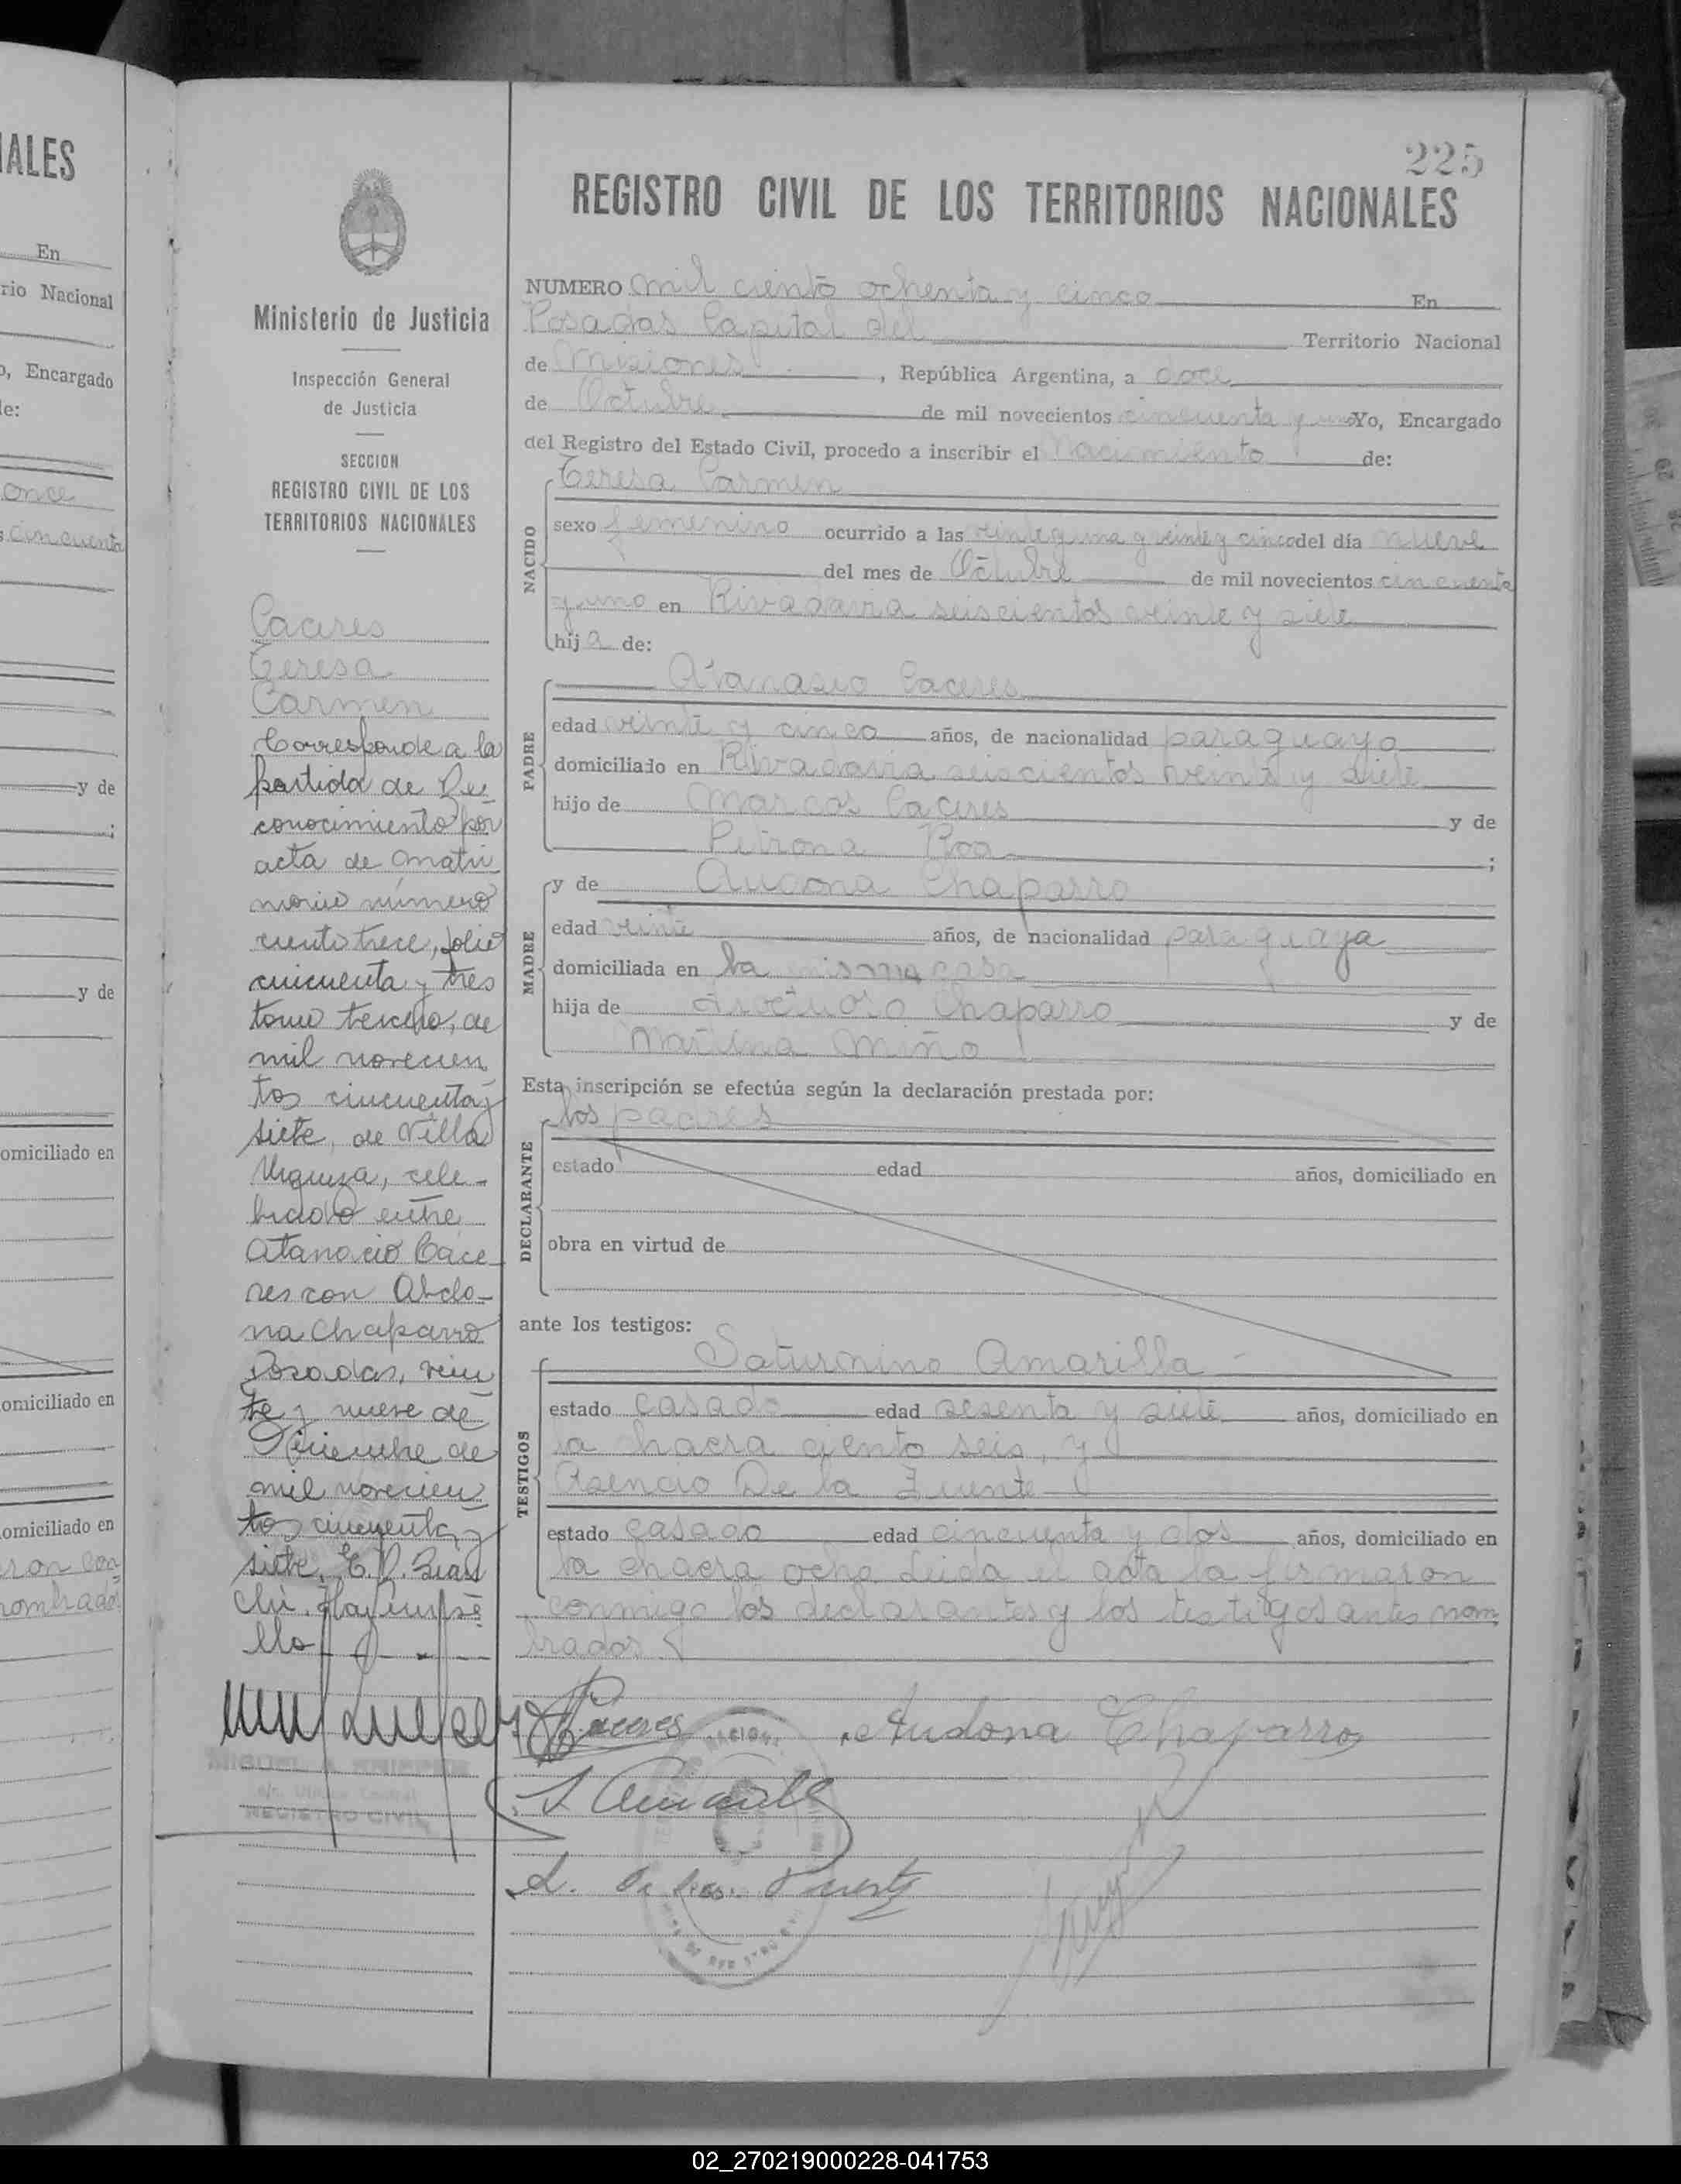 IALES
En
rio Nacional
o, Encargado
le:
once
cincuenta
y de
;
y de
omiciliado en
omiciliado en
omiciliado en
ron con
nombrado
225
REGISTRO CIVIL DE LOS TERRITORIOS NACIONALES
Ministerio de Justicia
Inspección General
de Justicia
SECCION
REGISTRO CIVIL DE LOS
TERRITORIOS NACIONALES
Caceres
Teresa
Carmen
Corresponde a la
partida de Re-
conocimiento por
acta de matri
monio número
ciento trece, folio
cincuenta y tres
tomo tercero, de
mil novecien
tos cincuenta y
siete, de Villa
Urquiza, cele-
brado entre
Atanacio Cace-
res con Abdo-
na Chaparro
Posadas, vein
te y nueve de
de
mil novecien
tos cincuenta y
siete,
REGISTRO CIVIL
NUMERO mil ciento ochenta y cinco En
Posadas Capital del Territorio Nacional
de Misiones, República Argentina, a doce
de Octubre de mil novecientos cincuenta y uno Yo, Encargado
del Registro del Estado Civil, procedo a inscribir el Nacimiento de:
NACIDO
Teresa Carmen
sexo femenino ocurrido a las veinte y una y veinte y cinco del día nueve
del mes de Octubre de mil novecientos cincuenta
y uno en Rivadavia seiscientos veinte y siete
hija de:
PADRE
Atanasio Caceres
edad veinte y cinco años, de nacionalidad paraguayo
domiciliado en Rivadavia seiscientos veinte y siete
hijo de Marcos Caceres y de
Petrona Roa ;
MADRE
y de Audona Chaparro
edad veinte años, de nacionalidad paraguaya
domiciliada en la misma casa
hija de Chaparro y de
Miño
Esta inscripción se efectúa según la declaración prestada por:
DECLARANTE
los padres
estado edad años, domiciliado en
obra en virtud de
ante los testigos:
TESTIGOS
Saturnino Amarilla
estado casado edad sesenta y siete años, domiciliado en
la chacra ciento seis, y
Asencio De la Fuente
estado casado edad cincuenta y dos años, domiciliado en
la chacra ocho Leida el acta la firmaron
conmigo los declarantes y los testigos antes nom
brados.
Caceres Audona Chaparro
S Amarilla
A. De la Fuente
02_270219000228-041753